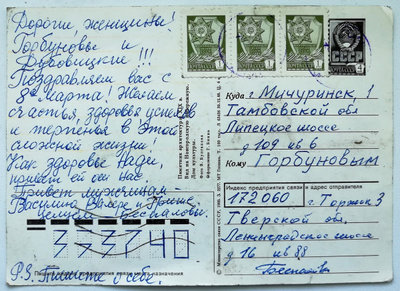 Дорогие женщины!
Горбуновы и
Дубовицкие!!!
Поздравляем вас с
8е Марта! Желаем,
счастья, здоровья успехов
и терпенья в этой
сложной жизни!
Как здоровье Нади,
привет ей от нас
Привет мужчинам-
Василию, Вите и Нине,
Целуем Беспаловы.
P.S. Пишите о себе.
СССР
4
1
1
1
Куда г. Мичуринск, 1
Тамбовской обл
Липецкое шоссе
д 109 кв 6
Кому Горбуновым
Индекс предприятия связи и адрес отправителя
172060 г. Торжок 3
Тверской обл.
Ленинградское шоссе
д 16 кв 88
Беспалова